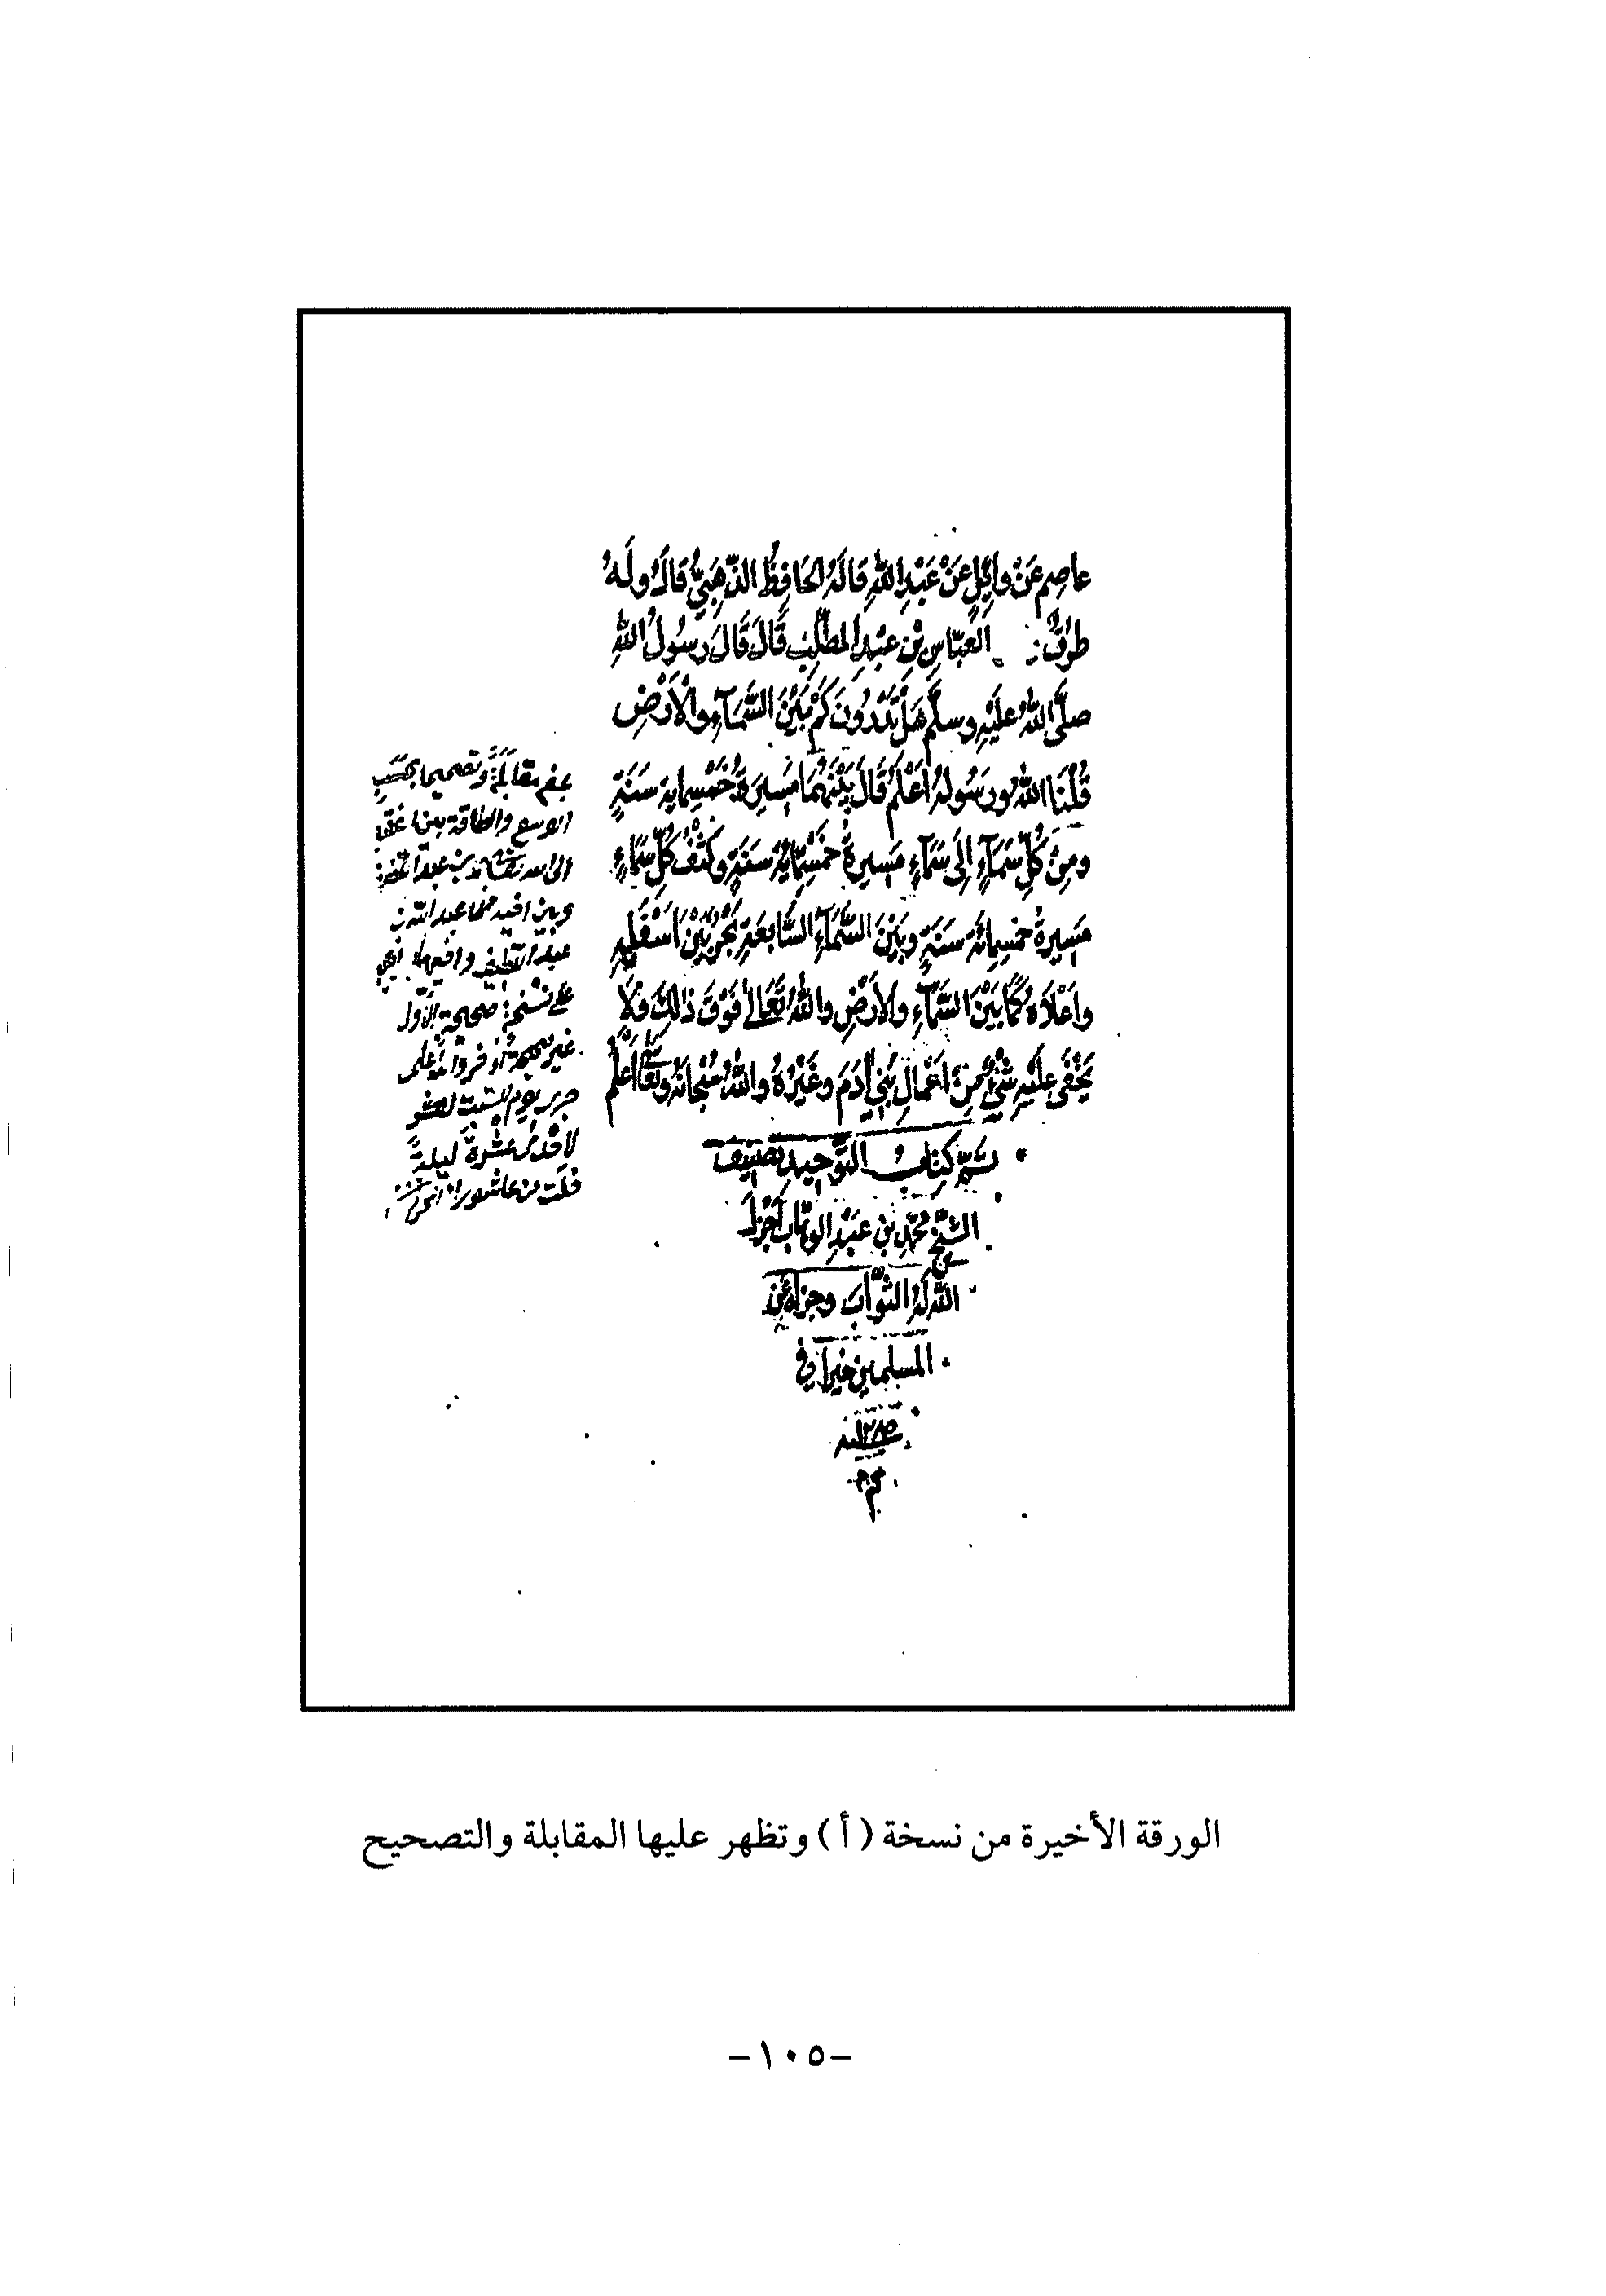 عاصِم عَنْ وائِلٍ عَنْ عَبْدِ اللهِ قَالَهُ الحَافِظُ الذَّهَبِيُّ قَالَ وَلَهُ
طُرُقٌ: العَبَّاسِ بْنِ عَبْدِ المطَّلِبِ قَالَ قَالَ رَسُولُ اللهِ
صلَّى اللهُ عَلَيْهِ وسلَّم هَلْ تَدْرُونَ كَمْ بَيْنَ السَّمَآءِ والْأَرْضِ
قُلْنَا اللهُ ورَسُولُهُ اَعْلَمُ قَالَ بَيْنَهُمَا مَسِيرَةُ خَمْسِمايَةِ سَنَةٍ
ومِنْ كُلِّ سَمَآءٍ إلَى سَمَآءٍ مَسِيرَةُ خَمْسِمائَةِ سَنَةٍ وكِثْفُ كُلِّ سَمَاءٍ
مَسِيرةُ خمسِمائَةِ سَنَةٍ وبَيْنَ السَّمَآءِ السَّابعَةِ بَحْرٌ بَيْنَ اَسْفَلِهِ
واَعْلَاهُ كَمَا بَيْنَ السَّمَآءِ والاَرْضِ واللهُ تَعَالَى فَوْقَ ذَالِكَ ولَا
يَخْفَى عَلَيْهِ شَيْءٌ مِنْ اَعْمَالِ بَنِي آدَمَ وغَيْرُهُ واللهُ سُبْحَانَهُ وتَعَالَى اَعْلَم
تَمَّ كِتَابُ التَّوْحِيدِ تصنيف
الشَّيْخِ مُحَمَّدِ بنِ عَبْدِ الوَهَّابِ اَجْزَلَ
اللهُ لَهُ الثَّوَابَ وجزاهُ عَنِ
المسلمين خيراً في
سنة ١٢٨٥
تم
بلغ مقابلةً وتصحيحا بحسَبِ
الوسع والطاقة
عبد الله بن
عبد اللطيف
على نسخة صحيحة الاول
غير صحيحة والله اعلم
يوم السبت
لاحدى عشرة ليلة
خلت من عاشوراء
الورقة الأخيرة من نسخة (أ) وتظهر عليها المقابلة والتصحيح
-١٠٥-